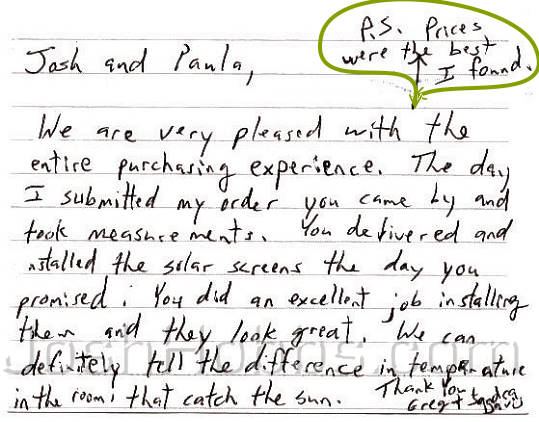 P.S. Prices
were the best
I found.
Josh and Paula,
We are very pleased with the
entire purchasing experience. The day
I submitted my order you came by and
took measurements. You delivered and
nstalled the solar screens the day you
promised. You did an excellent job installing
them and they look great. We can
definitely tell the difference in temperature
in the rooms that catch the sun.
Thank You
Greg + Sandra